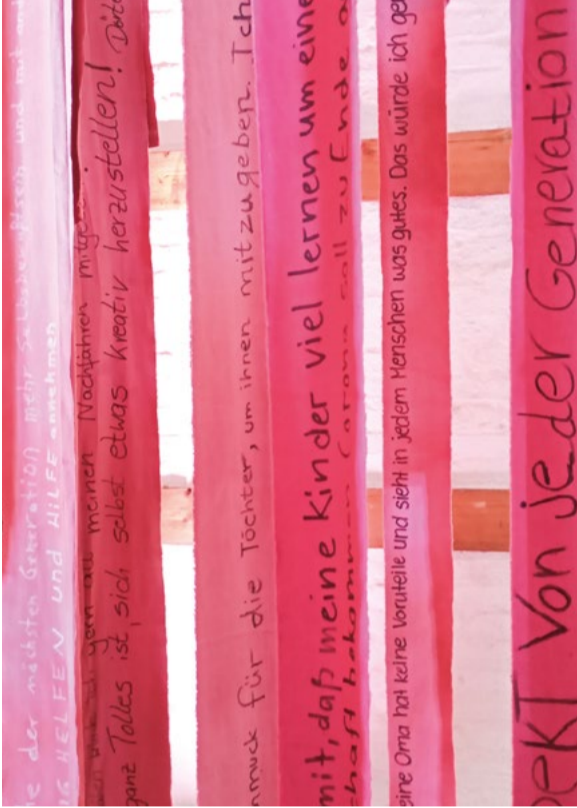 der nächsten Generation mehr und mit
HELFEN und HILFE annehmen
meinen Nachfahren
ganz Tolles ist, sich selbst etwas kreativ herzustellen!
für die Töchter, um ihnen mitzugeben. Ich
mit, daß meine Kinder viel lernen um eine
bekommen Corona soll zu Ende
eine Oma hat keine Vorurteile und sieht in jedem Menschen was gutes. Das würde ich
Von jeder Generation